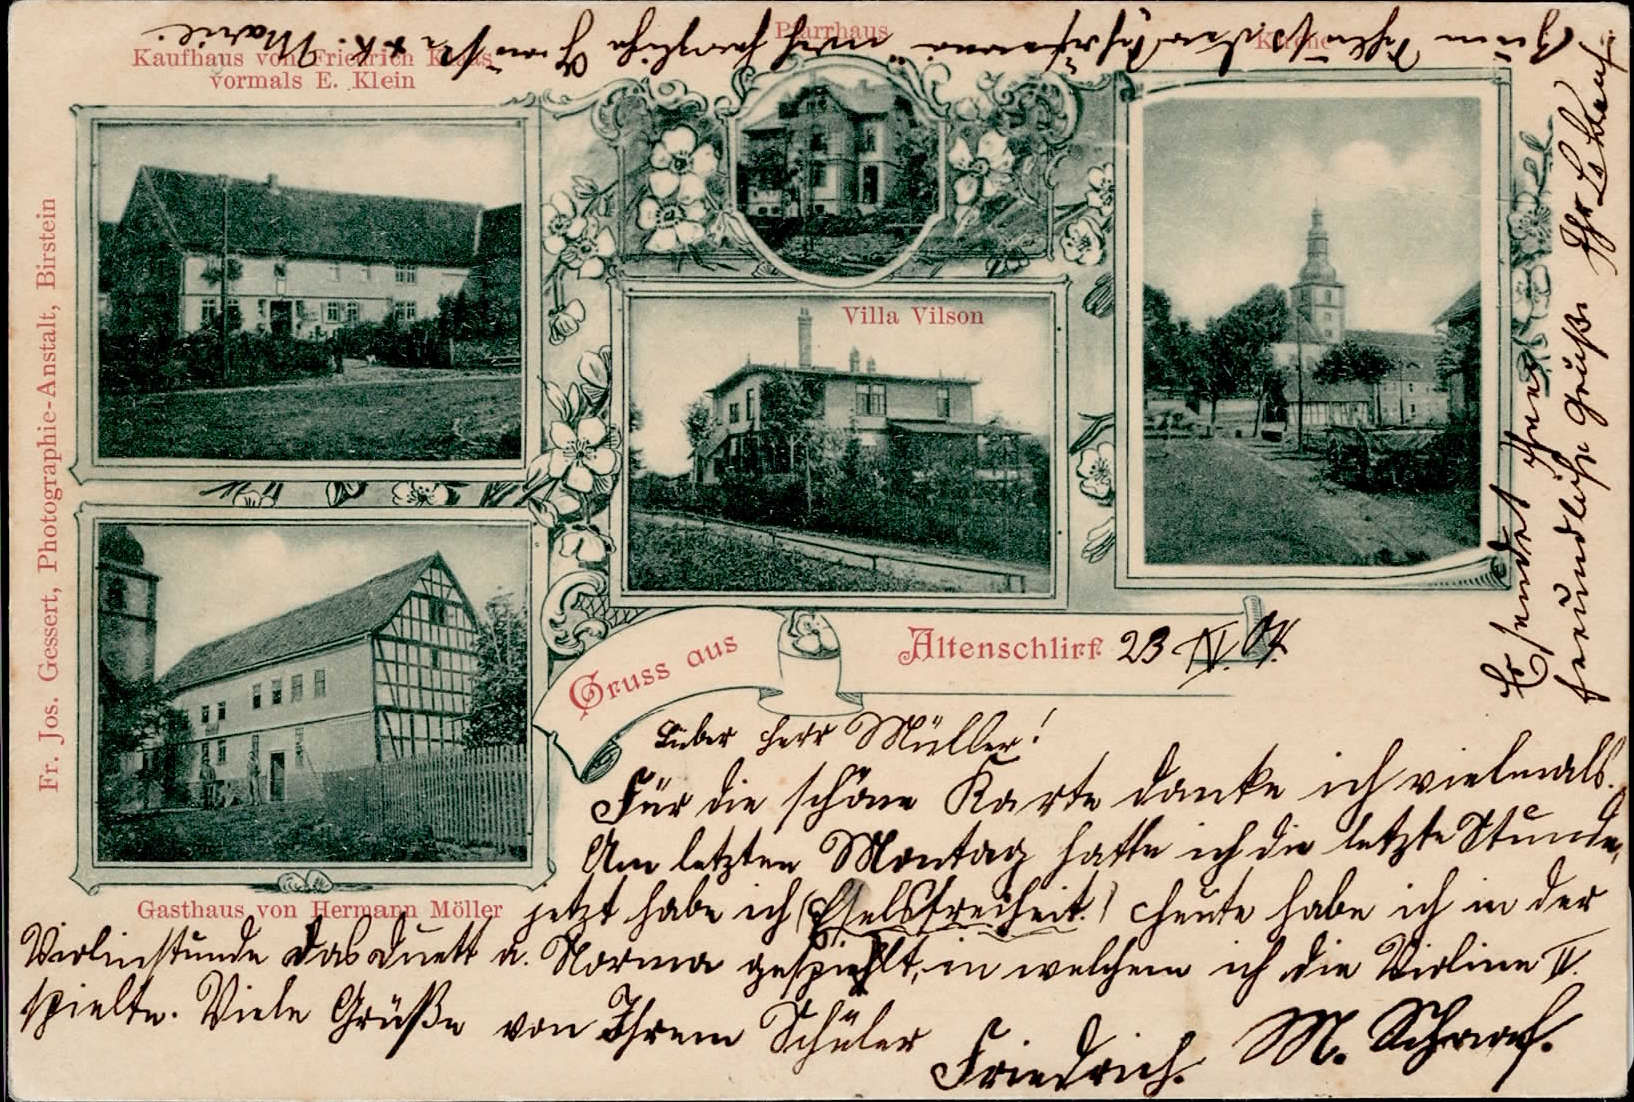 Kaufhaus von Friedrich Klaus
vormals E. Klein
Pfarrhaus
Kirche
Villa Vilson
Fr. Jos. Gessert, Photographie-Anstalt, Birstein
Gasthaus von Hermann Möller
Gruss aus
Altenschlirf 23 IV. 04.
Lieber Herr Müller!
Für die schöne Karte danke ich vielmals.
Am letzten Montag hatte ich die letzte Stunde,
jetzt habe ich (Eselsfreiheit.) Heute habe ich in der
Violinstunde das Duett a. Norma gespielt, in welchem ich die Violine II.
spielte. Viele Grüße von Ihrem Schüler
Friedrich. M. Schaaf.
Es sendet Ihnen
freundliche Grüße Ihr
noch herzliche Grüße
Marie.